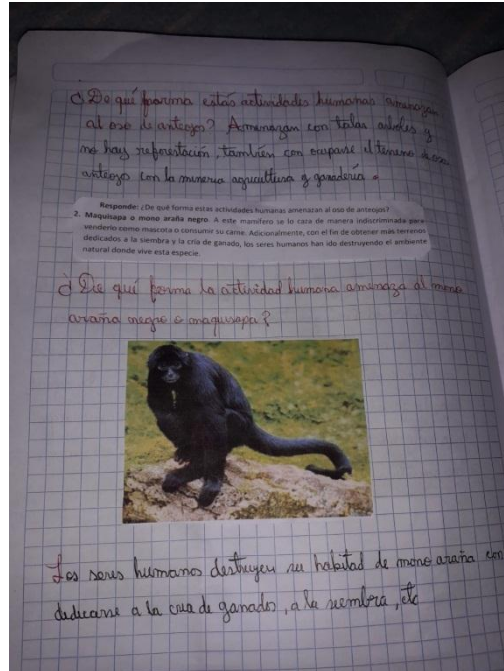 ¿De qué forma estás actividades humanas amenazan
al oso de anteojos? Amenazan con talas arboles y
no hay reforestación, también con ocuparse el terreno de oso
anteojo con la mineria agricultura y ganadería.
Responde: ¿De qué forma estas actividades humanas amenazan al oso de anteojos?
2. Maquisapa o mono araña negro. A este mamífero se lo caza de manera indiscriminada para
venderlo como mascota o consumir su carne. Adicionalmente, con el fin de obtener más terrenos
dedicados a la siembra y la cría de ganado, los seres humanos han ido destruyendo el ambiente
natural donde vive esta especie.
¿De qué forma la actividad humana amenaza al mono
araña negro o maquisapa?
Los seres humanos destruyen su habitad de mono araña
dedicarse a la cria de ganados, a la siembra, etc